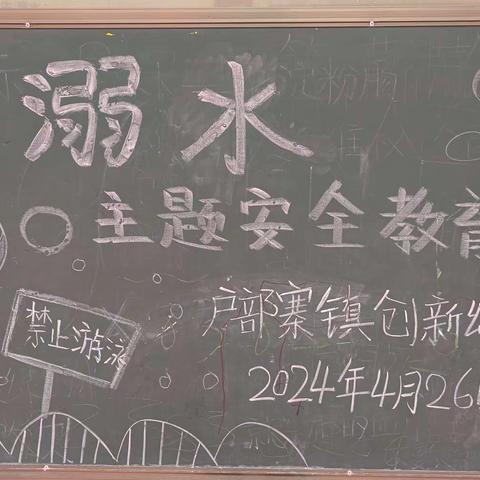 溺水
主题安全教育
户部寨镇创新
2024年4月26
禁止游泳